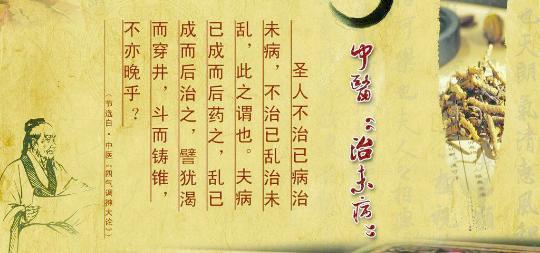 中醫“治未病”
圣人不治已病治
未病，不治已乱治未
乱，此之谓也。夫病
已成而后药之，乱已
成而后治之，譬犹渴
而穿井，斗而铸锥，
不亦晚乎？
（节选自·中医《四气调神大论》）